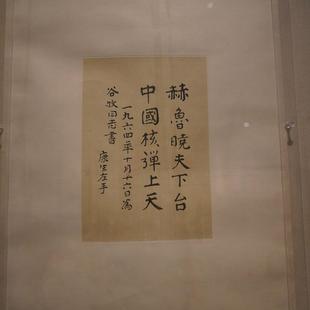 赫魯曉夫下台
中國核彈上天
一九六四年十月十六日為
谷牧同志書
康生左手